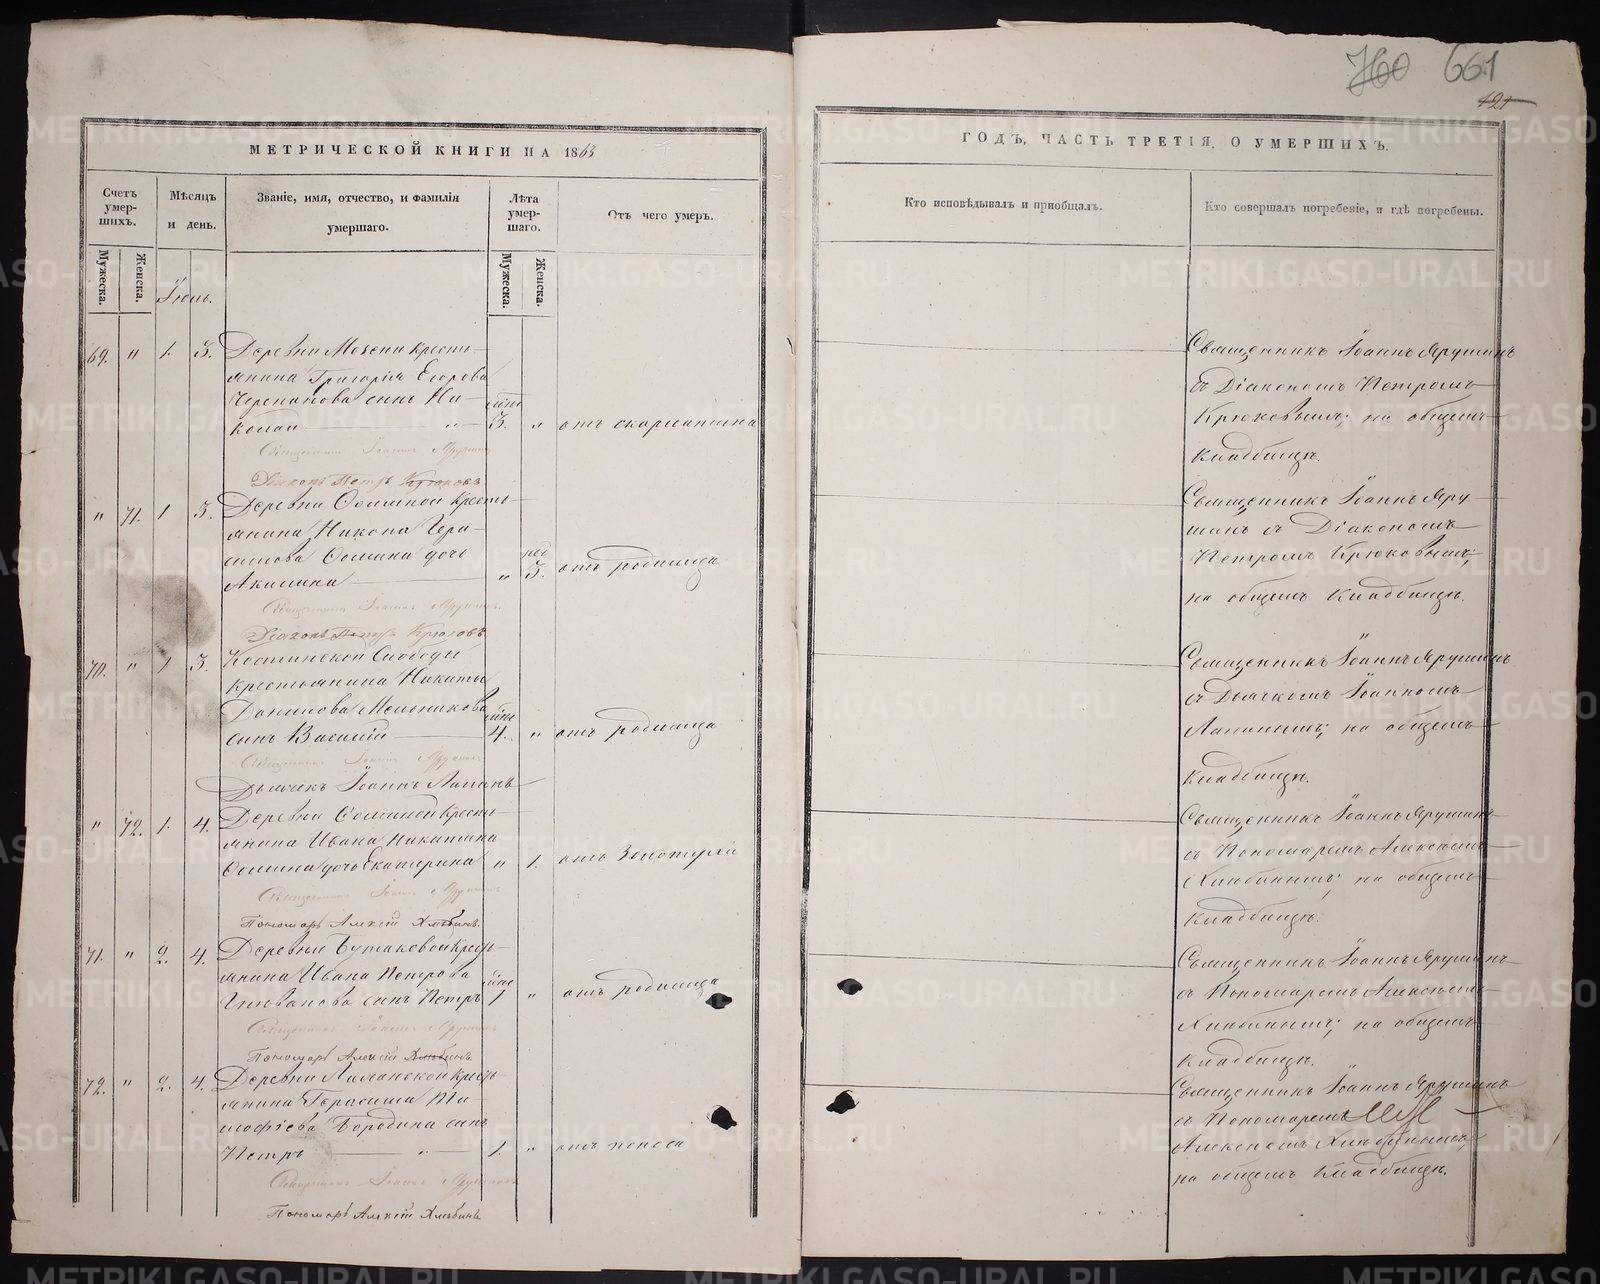 МЕТРИЧЕСКОЙ КНИГИ НА 1863
Счетъ умер-шихъ.
Мѣсяцъ и день.
Званіе, имя, отчество, и фамилія умершаго.
Лѣта умер-шаго.
Отъ чего умеръ.
Мужеска.
Женска.
Мужеска.
Женска.
Іюнь.
69. " 1. 3. Деревни Мозени крестья-
янина Григорія Егорова
Черепанова сынъ Ни-
колай 3. " отъ скарлатины
Священникъ Іоаннъ Ярушинъ
Діаконъ Петръ Крюковъ
" 71. 1 3. Деревни Соминой кресть-
янина Никона Гера-
симова Сомина дочь
Акилина " 3. отъ родимца
Священникъ Іоаннъ Ярушинъ
Діаконъ Петръ Крюковъ
70. " 1 3. Костинской Слободы
крестьянина Никиты
Данилова Мельникова
сынъ Василій 4. " отъ родимца
Священникъ Іоаннъ Ярушинъ
Дьячекъ Іоаннъ Лапинъ
" 72. 1. 4. Деревни Соминой кресть-
янина Ивана Никитина
Сомина дочь Екатерина " 1. отъ золотухи
Священникъ Іоаннъ Ярушинъ
Пономарь Алексій Хлѣбинъ
71. " 2. 4. Деревни Бутаковой крест-
янина Ивана Петрова
сынъ Петръ 1 " отъ родимца
Священникъ Іоаннъ Ярушинъ
Пономарь Алексій Хлѣбинъ
72. " 2. 4. Деревни крест-
янина Герасима Ти-
мофѣева Бородина сынъ
Петръ " 1. " отъ поноса
Священникъ Іоаннъ Ярушинъ
Пономарь Алексій Хлѣбинъ
760 661
121
ГОДЪ, ЧАСТЬ ТРЕТІЯ, О УМЕРШИХЪ.
Кто исповѣдывалъ и пріобщалъ.
Кто совершалъ погребеніе, и гдѣ погребены.
Священникъ Іоаннъ Ярушинъ
съ Діакономъ Петромъ
Крюковымъ; на общемъ
кладбищѣ.
Священникъ Іоаннъ Яру-
шинъ съ Діакономъ
Петромъ Крюковымъ;
на общемъ кладбищѣ.
Священникъ Іоаннъ Ярушинъ
съ Дьячкомъ Іоанномъ
Лапинымъ; на общемъ
кладбищѣ.
Священникъ Іоаннъ Ярушинъ
съ Пономаремъ Алексѣемъ
Хлѣбинымъ; на общемъ
кладбищѣ.
Священникъ Іоаннъ Ярушинъ
съ Пономаремъ Алексѣемъ
Хлѣбинымъ; на общемъ
кладбищѣ.
Священникъ Іоаннъ Ярушинъ
съ Пономаремъ
Алексѣемъ Хлѣбинымъ,
на общемъ кладбищѣ.
METRIKI.GASO-URAL.RU